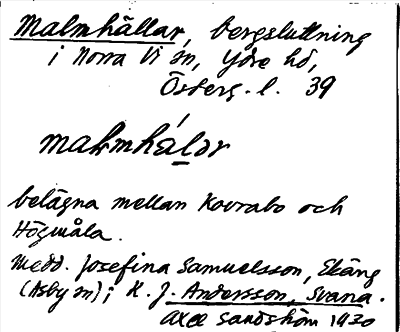 Malmhällar, bergsluttning
i Norra Vi sn, Ydre hd,
Österg. l. 39
belägna mellan Kovrabo och
Högmåla.
Medd. Josefina Samuelsson, Ekäng
(Asby sn); K. J. Andersson, Svana.
Axel Sandström 1930